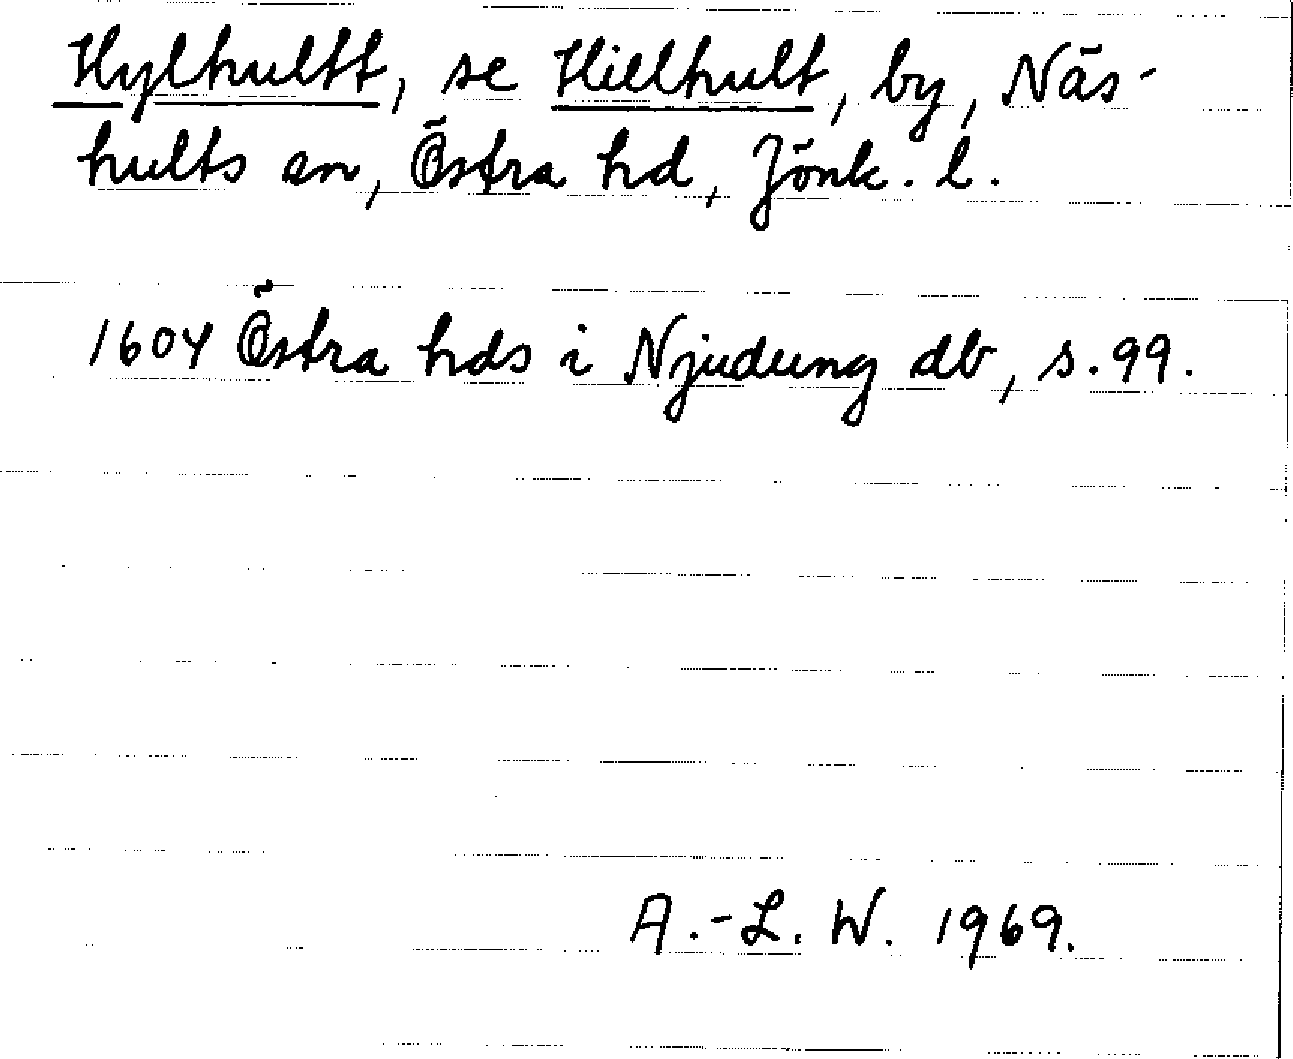 Hylhultt, se Hillhult, by, Näs-
hults sn, Östra hd, Jönk. l.
1604 Östra hds i Njudung db, s. 99.
A.-L. W. 1969.